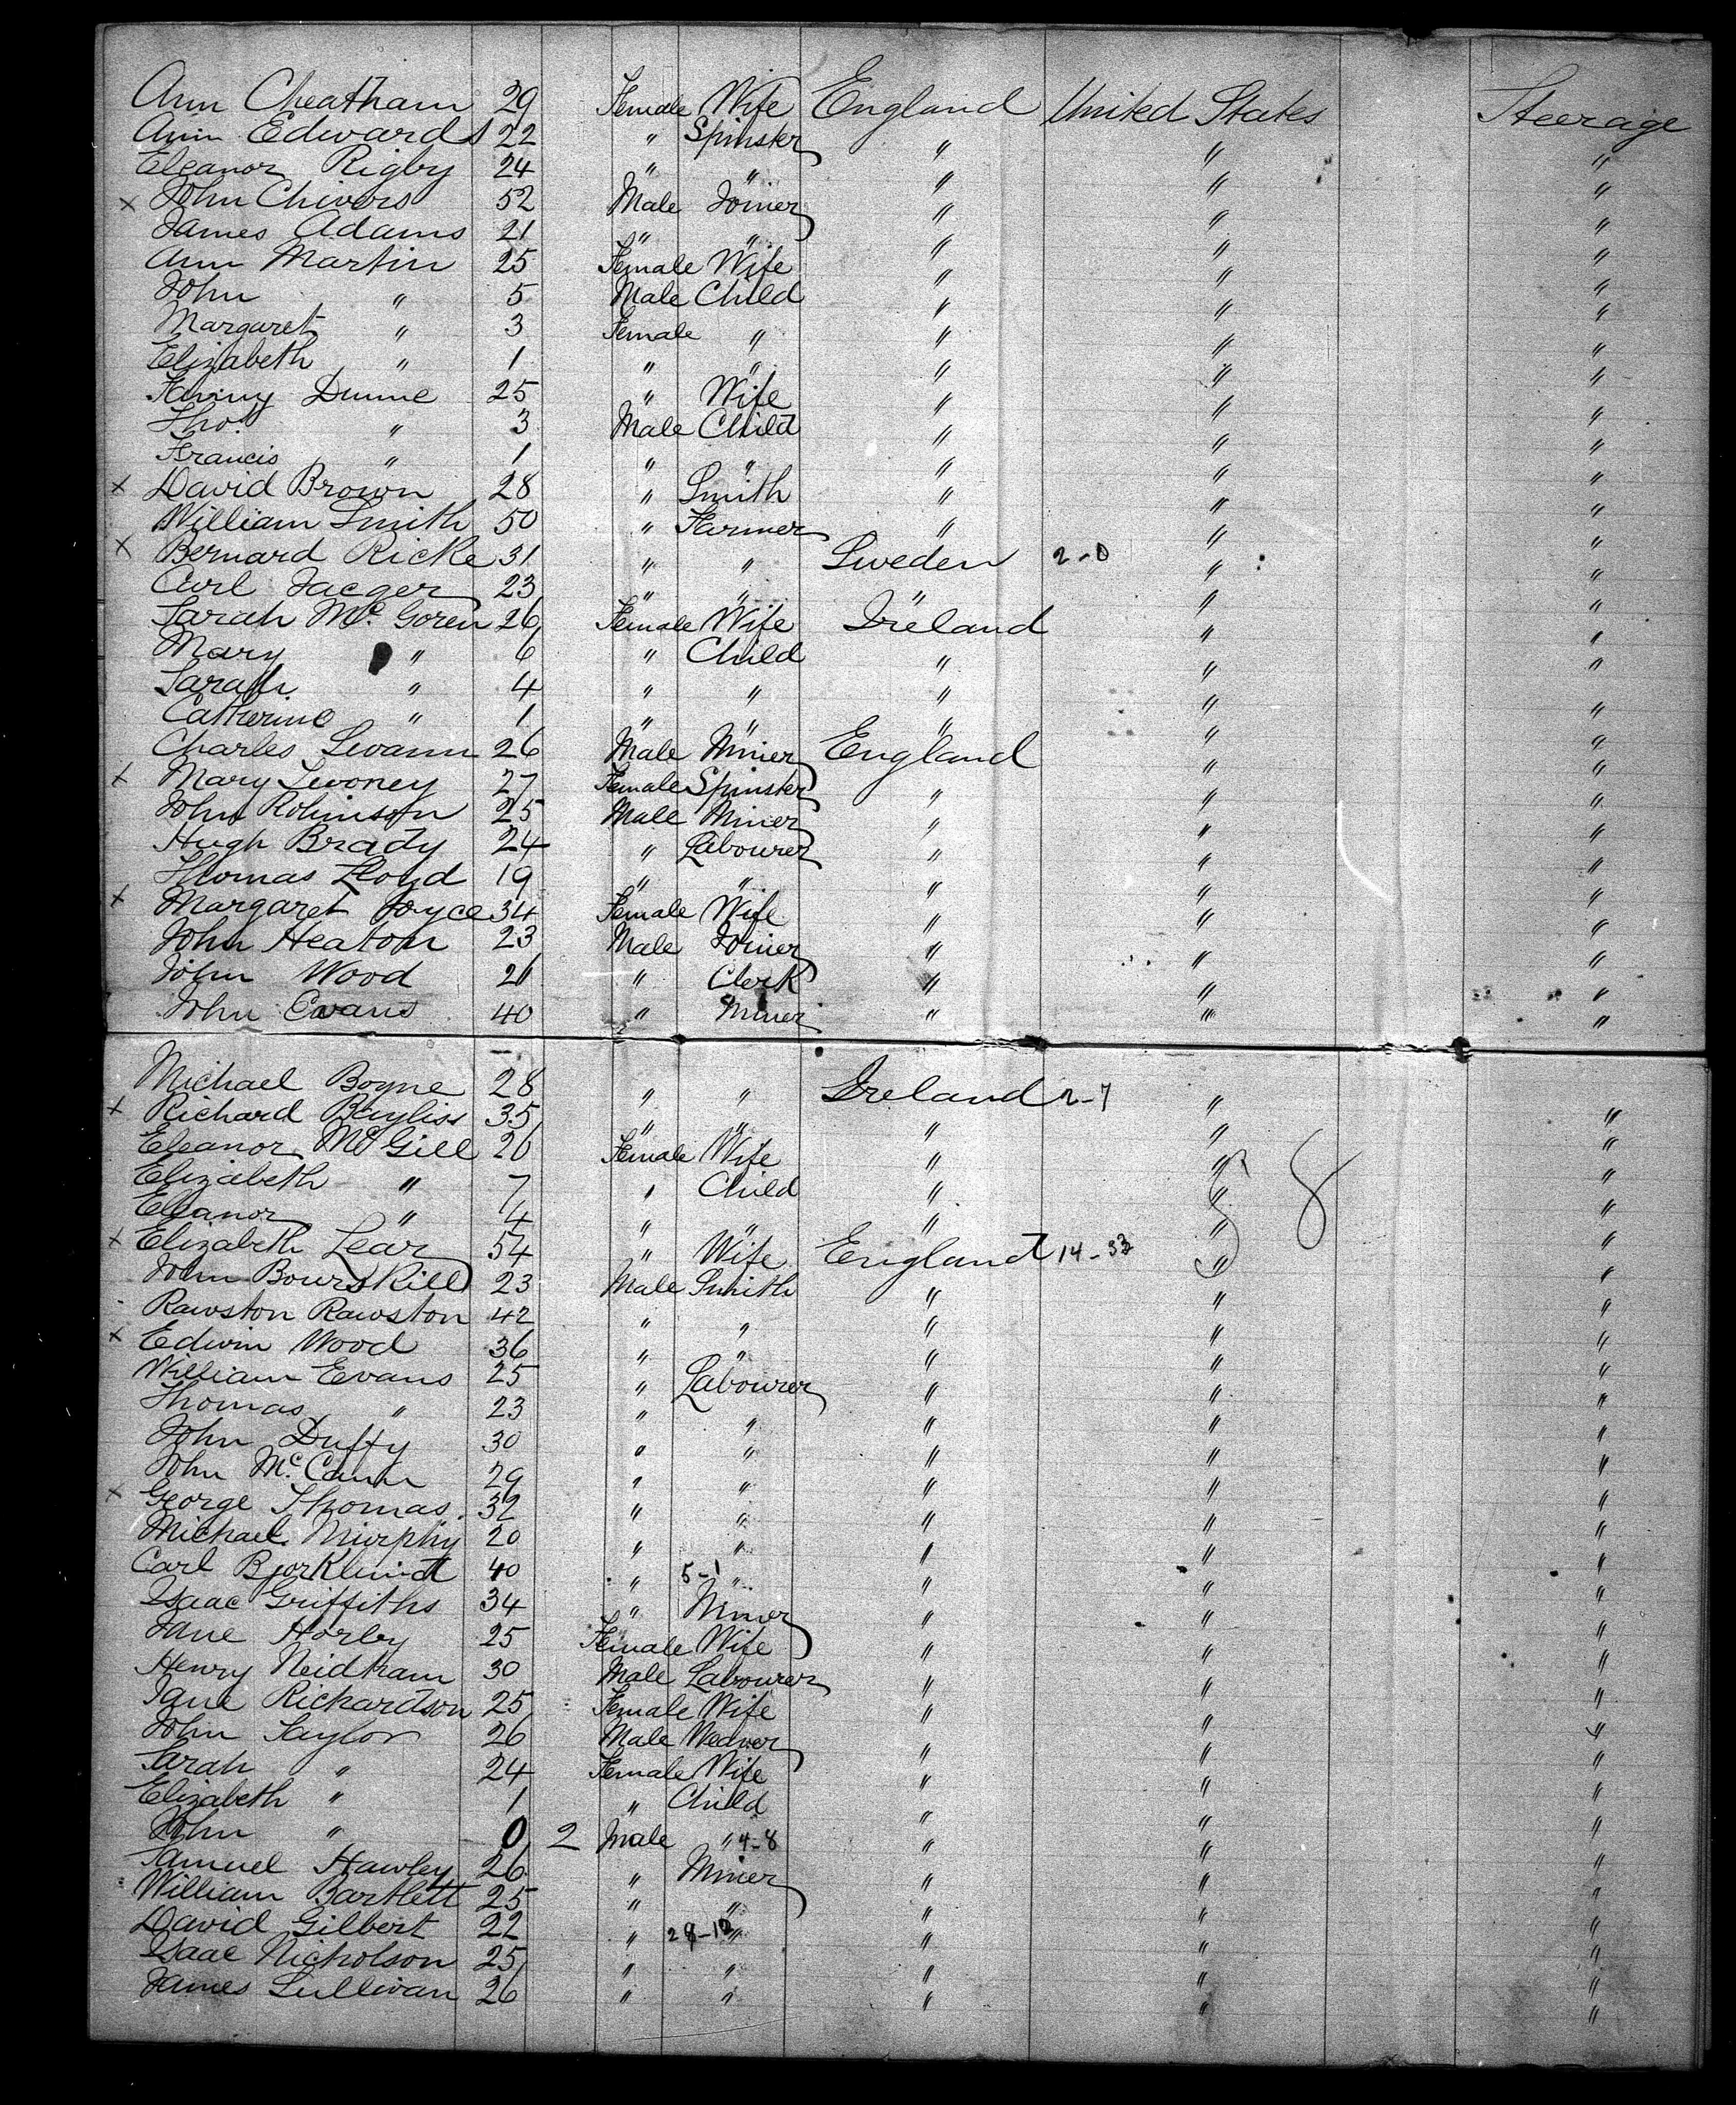 Ann Cheatham 29 Female Wife England United States Steerage
Ann Edwards 22 " Spinster " " "
Eleanor Rigby 24 " " " " "
x John Chivers 52 Male Joiner " " "
James Adams 21 " " " " "
Ann Martin 25 Female Wife " " "
John " 5 Male Child " " "
Margaret " 3 Female " " " "
Elizabeth " 1 " " " " "
Fanny Dunne 25 " Wife " " "
Thos " 3 Male Child " " "
Francis " 1 " " " " "
x David Brown 28 " Smith " " "
William Smith 50 " Farmer " " "
x Bernard Ricke 31 " " Sweden 2-0 " "
Carl Jaeger 23 " " " " "
Sarah Mc. Goren 26 Female Wife Ireland " "
Mary " 6 " Child " " "
Sarah " 4 " " " " "
Catherine " 1 " " " " "
Charles Swann 26 Male Miner England " "
x Mary Swoney 27 Female Spinster " " "
John Robinson 25 Male Miner " " "
Hugh Brady 24 " Labourer " " "
Thomas Lloyd 19 " " " " "
x Margaret Joyce 34 Female Wife " " "
John Heaton 23 Male Joiner " " "
John Wood 21 " Clerk " " "
John Evans 40 " Miner " " "
Michael Boyne 28 " " Ireland 2-7 " "
x Richard Bayliss 35 " " " " "
Eleanor Mc Gill 26 Female Wife " " "
Elizabeth " 7 " Child " " 58 "
Eleanor " 4 " " " " "
x Elizabeth Lear 54 " Wife England 14-33 " "
John Bourskill 23 Male Smith " " "
Rawston Rawston 42 " " " " "
x Edwin Wood 36 " " " " "
William Evans 25 " Labourer " " "
Thomas " 23 " " " " "
John Duffy 30 " " " " "
John Mc. Cann 29 " " " " "
x George Thomas 32 " " " " "
Michael Murphy 20 " " " " "
Carl Bjorklundt 40 " 5-1 " " " "
Isaac Griffiths 34 " Miner " " "
Jane Horby 25 Female Wife " " "
Henry Neidham 30 Male Labourer " " "
Jane Richardson 25 Female Wife " " "
John Taylor 26 Male Weaver " " "
Sarah " 24 Female Wife " " "
Elizabeth " 1 " Child " " "
John " 0 2 Male " 4-8 " " "
Samuel Hawley 26 " Miner " " "
William Bartlett 25 " " " " "
David Gilbert 22 " 28-12 " " " "
Isaac Nicholson 25 " " " " "
James Sullivan 26 " " " " "